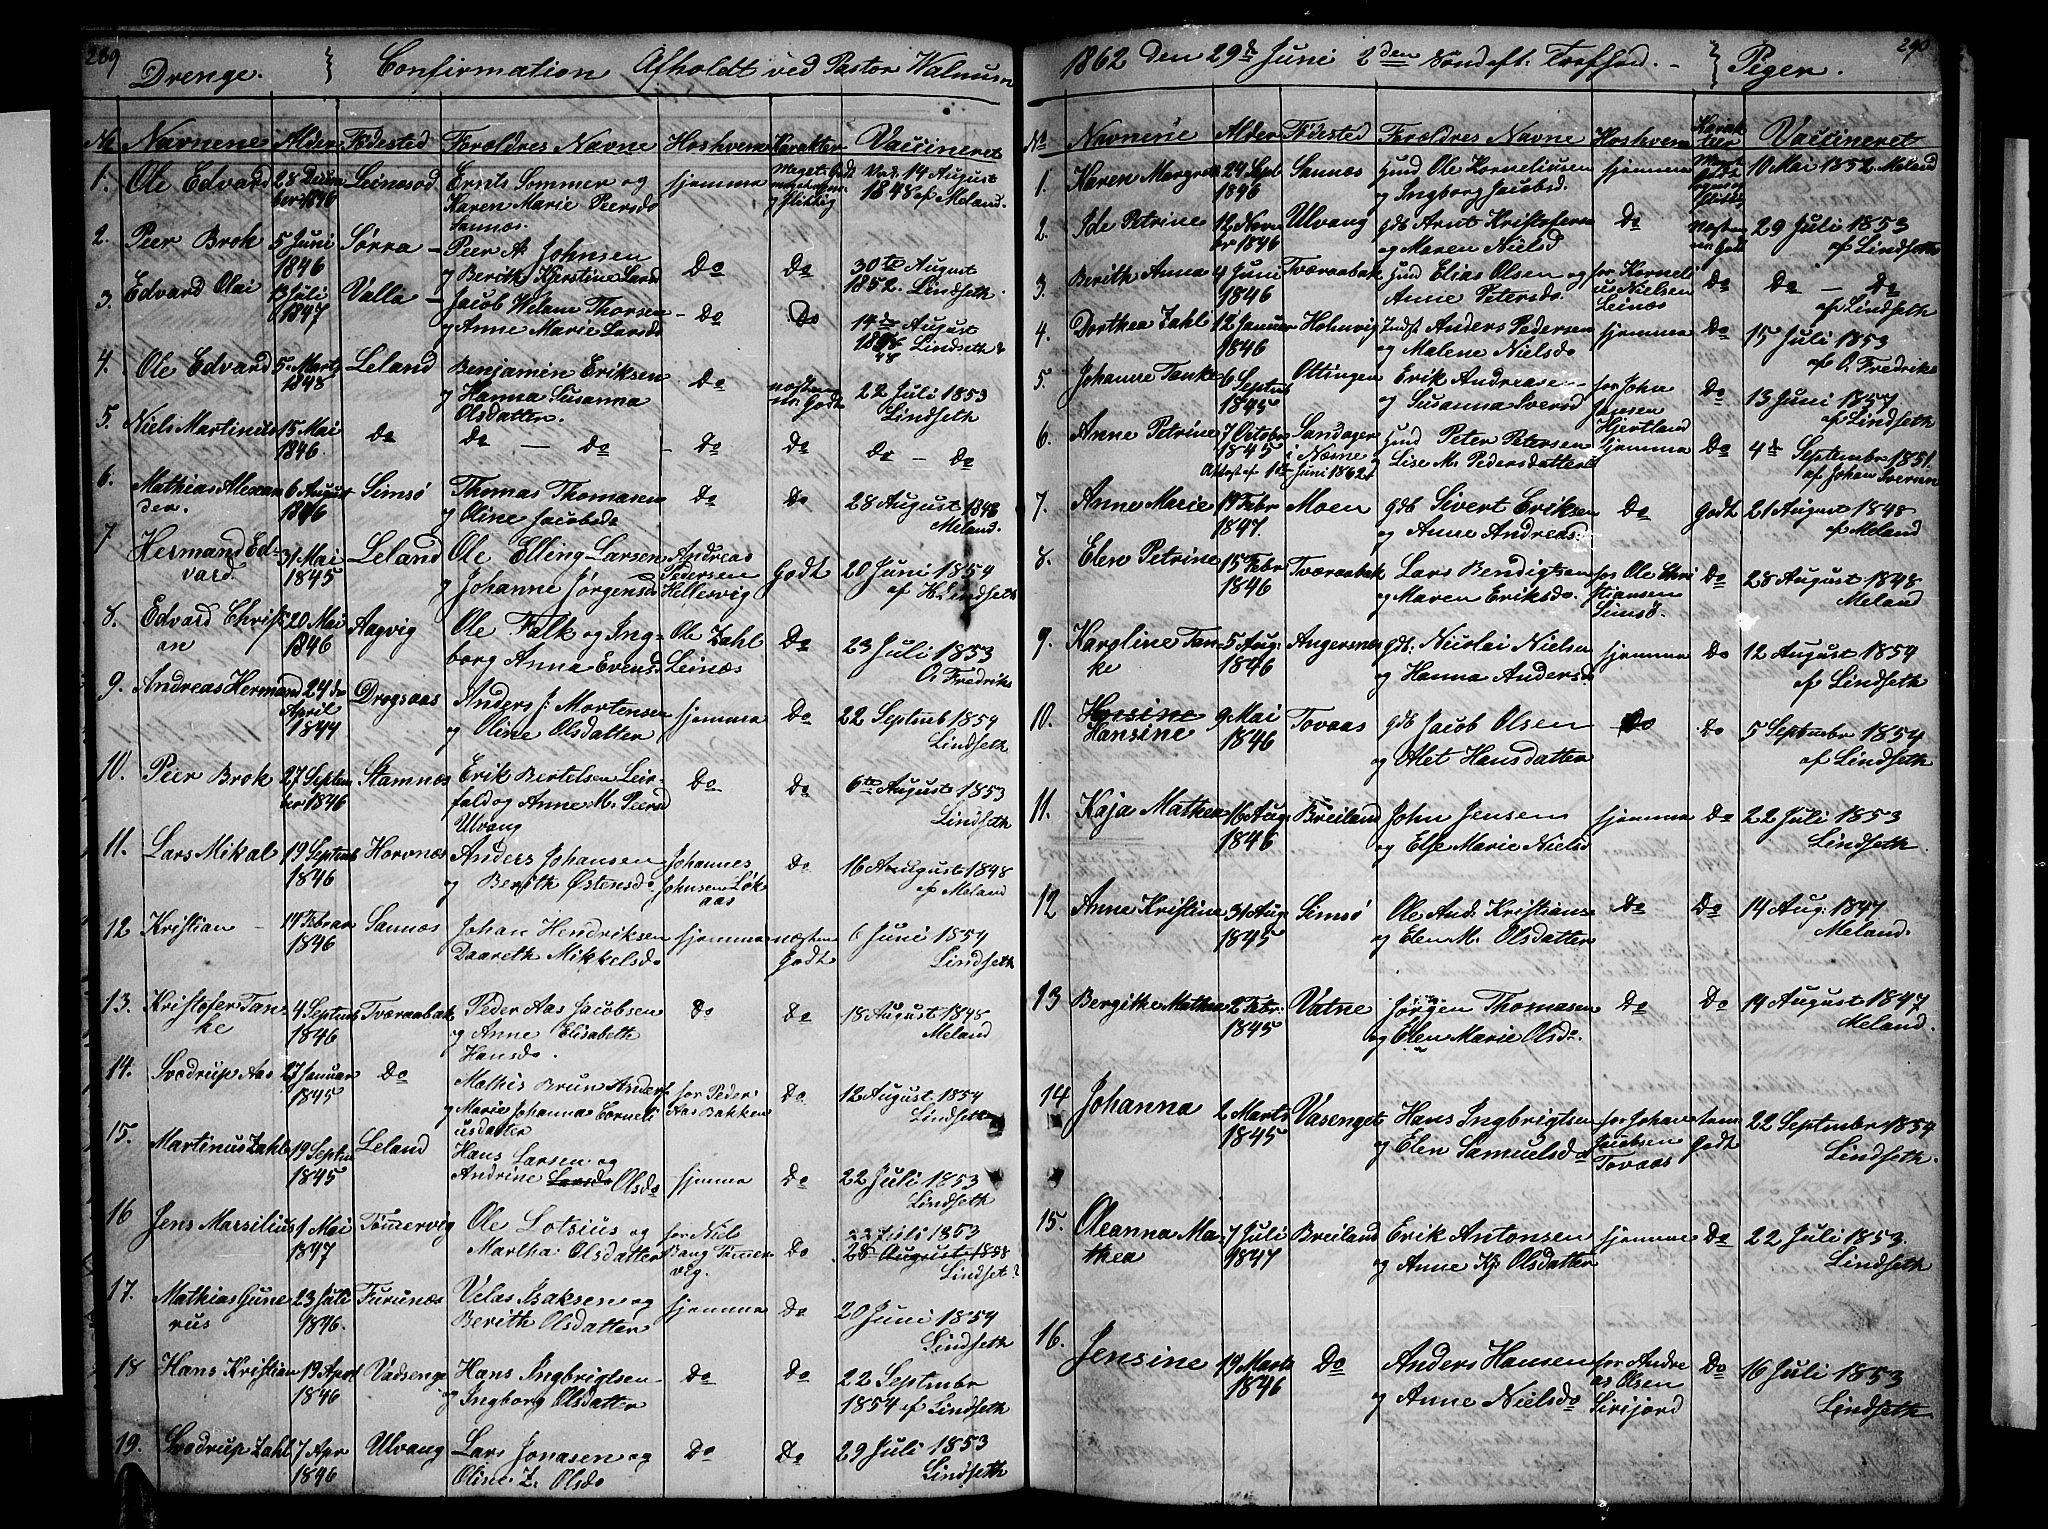 289
Drenge. Confirmation Afholdt ved Pastor Walnum
No Navnene Alder Fødested Foræld­res Navne Hoshvem Karakter Vaccineret
1. Ole Edvard 28 Decem Leinesod Ernts Sommer og hjemme Meget Godt Vac. 14 August
ber 1846 Karen Marie Peersdo og flittig 1848 af Meland.
Sannæs.
2. Peer Brok 5 Juni Sørra Peer A. Johnsen
1846 og Berith Kjerstine Larsd Do Do 30te August
1852. Lindseth.
3. Edvard Olai 13 Juli Valla Jacob Welam Thorsen Do Do 14de August
1847 og Anne Marie Larsdo 1848 Lindseth
4. Ole Edvard 5 Marts Leland Benjamin Eriksen Do næsten 22 Juli 1853
1848 og Hanna Susanna Godt Lindseth
Olsdatter.
5. Niels Martinus 15 Mai Do Do — Do Do Do Do — Do
1846.
6. Mathias Alexan 6 August Simsø Thomas Thomasen Do Do 28 August 1848
der. 1846 og Oline Jacobsdo Meland.
7 Hermand Ed- 31 Mai Leland Ole Elling Larsen Andreas Godt 20 Juni 1854
vard. 1845 og Johanne Jørgensdo Pedersen af Lindseth
Hellesvig
8. Edvard Christi 20 Mai Aagvig Ole Falk og Ing- Ole Zahl Do 23 Juli 1853
an 1846 borg Anna Evensd Leinæs O. Fredriks
9. Andreas Hermand 24de Dregsaas Anders J. Mortensen hjemme Do 22 Septemb 1854
April og Oline Olsdatter Lindseth
1844
10. Peer Brok 27 Septem Stamnæs Erik Bertelsen Leir- Do Do 6te August 1853
ber 1846 fald og Anne M. Peersd Lindseth
Ulvang
11. Lars Mikal 19 Septemb Hornnæs Anders Johansen Johannes Do 16 August 1848
1846 og Berith Østensdo Johnsen Løk af Meland
aas
12 Kristian 14 Febuar Sannæs Johan Hendriksen hjemme næsten 6 Juni 1854
1846 Daareth Mikkelsdo Godt Lindseth
13. Kristofer Tan- 4 Septemb Tværaabak Peder Aas Jacobsen Do Do 18 August 1848
ke 1846 og Anne Elisabeth Meland
Hansdo.
14. Svædrup Aas 27 Januar Do Mathis Brun Anders for Peder Do 12 August 1854
1845 og Marie Johanna Corneli Aas Bakken Lindseth
usdatter
15. Martinus Zahl 19 Septem Leland Hans Larsen og hjemme Do 22 Juli 1853
1845 Andrine Larsdo Olsdo Lindseth
16 Jens Marsilius 1 Mai Tømervig Ole Lotsius og for Niels Do 22 Juli 1853
1847 Martha Olsdatter Bang Tømer 28 August 1858
vig. Lindset
17. Mathias Gune 23 Juli Furunæs Velas Isaksen og hjemme Do 20 Juni 1854
rius 1846. Berith Olsdatter Lindseth
18 Hans Kristian 13 April Vadsenge Hans Ingbrigtsen Do Do 22 Septembr
1846 og Ingborg Olsdatter 1854 af Lindseth
19. Svædrup Zahl 7 Apr Ulvang Lars Jonasen og Do Do 29 Juli 1853
1846 Oline Z. Olsdo Lindseth
290
1862 Den 29de Juni 2den Søndeft. Trefhed. Piger.
No Navnene Alder Fødested Forældres Navne Hoshvem Karak­ter Vaccineret
1. Karen Margrete 24 Sept Sannæs Hund Ole Korneliusen hjemme Meget Godt 10 Mai 1852 Meland
1846 og Ingborg Jacobsd.
2. Ide Petrine 12 Novm Ulvang gdb Arnt Kristofersen Do Næsten 29 Juli 1853
br 1846 og Maren Nielsd Godt af Lindseth
3. Berith Anna 4 Juni Tværaabak Hund Elias Olsen og for Kornel Do Do — Do
1846 Anne Petersdo. ius Nielsen af Lindseth
Leinæs
4. Dorthea Zahl 12 Januar Holmvig Indst Anders Pedersen hjemme Do 15 Juli 1853
1846 og Malene Nielsdo af O. Fredriks
5. Johanne Tanke 6 Septemb Ottingen Erik Andreasen for John Do 13 Juni 1857
1845 og Susanna Iversd Jansen af Lindseth
Hjertland
6. Anne Petrine 7 Octobr Sandager Hund Peter Petersen hjemme Do 4de Septembr 1851.
1845 i Næsne Lise M. Pedersdatter af Johan Iversen
Attest af 1ste Juni 1862
7. Anne Marie 19 Febr Moen gdb Sivert Eriksen Do Godt 21 August 1848
1847. og Anne Andreasd. af Meland
8. Elen Petrine 15 Febr Tværaabak Lars Bendigtsen for Ole Chri Do 28 August 1848
1846 og Maren Eriksdo stiansen Meland
Simsø.
9. Karoline Tan- 5 Aug. Angersnes gdb. Nicolai Nielsen hjemme Do 12 August 1854
ke 1846 og Hanna Andersdo af Lindseth
10. Hansine 9 Mai Tovaas gdb Jacob Olsen Do Do 5 Septembr 1854
Hansine 1846 og Alet Hansdatter af Lindseth
11. Kaja Mathea 16 Aug. Breiland John Jensen hjemme Do 22 Juli 1853
1846 og Else Marie Nielsd Lindseth.
12 Anne Kristine 31 Aug Simsø Ole And. Kristians Do Do 14 Aug. 1847
1845 og Elen M. Olsdatter Meland.
13 Bergithe Mathea 2 Febr. Vatne Jørgen Thomasen Do Do 14 August 1847
1845 og Elen Marie Olsdo. Meland.
14 Johanna 2 Marts Vasenget Hans Ingbrigtsen for Johan tem 22 Septembr 1854
1845 og Elen Samuelsdo Jacobsen Godt Lindseth.
Tovaas
15. Oleanna Ma- 7 Juli Breiland Erik Antonsen hjemme Do 22 Juli 1853.
thea 1847 og Anne Kj. Olsdatter Lindseth
16. Jensine 19 Marts Do Anders Hansen for Andre Do 16 Juli 1853
1846 og Anne Nielsdo as Olsen Lindseth
Sirijord